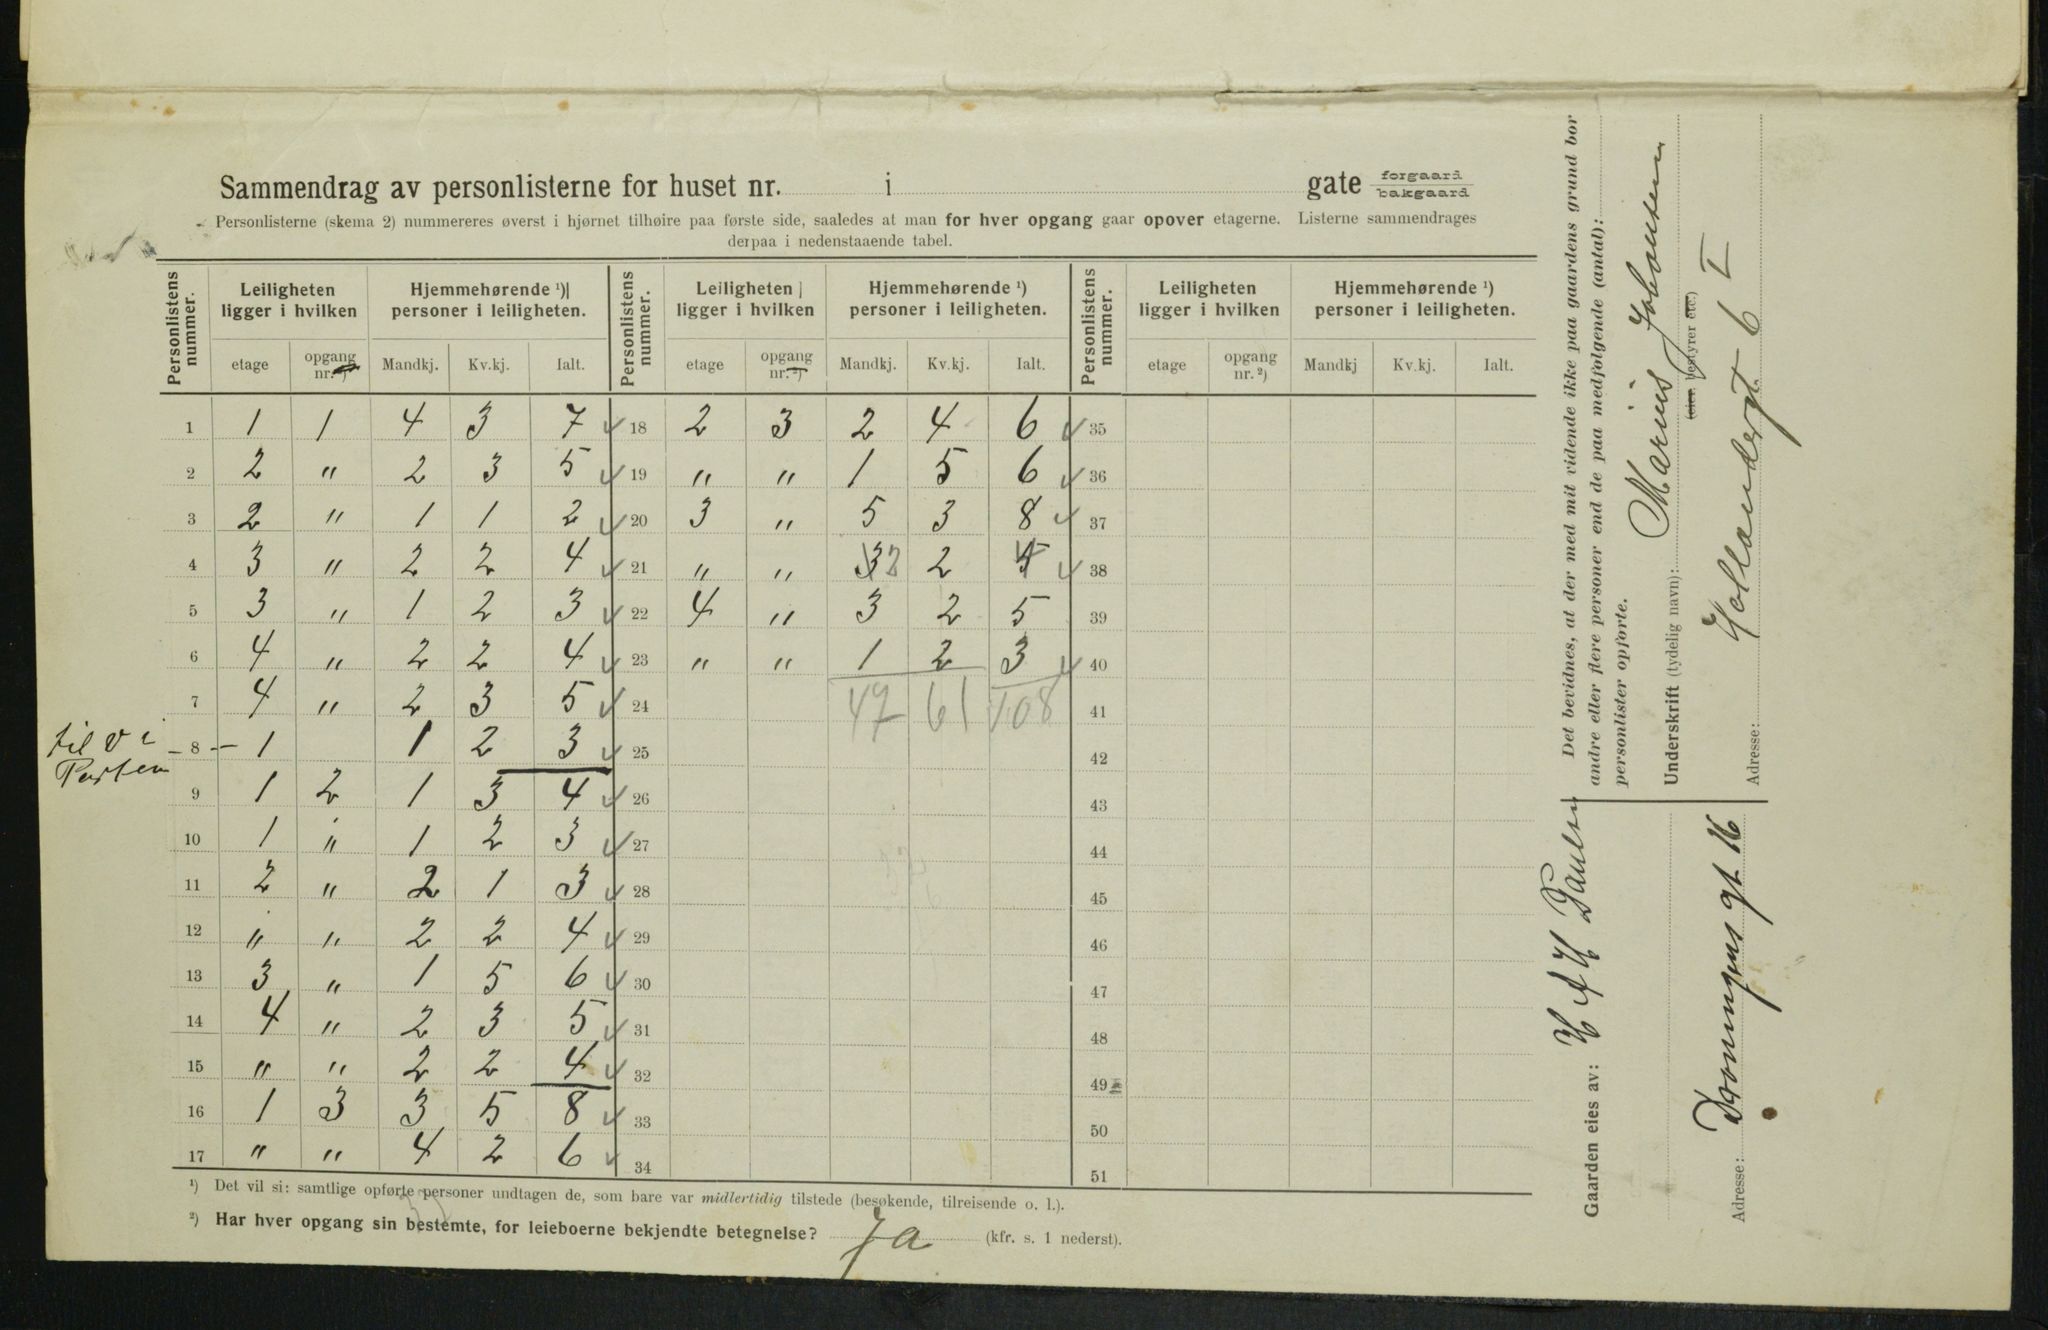 Sammendrag av personlisterne for huset nr. i gate forgaard bakgaard
Personlisterne (skema 2) nummereres øverst i hjørnet tilhøire paa første side, saaledes at man for hver opgang gaar opover etagerne. Listerne sammendrages
derpaa i nedenstaaende tabel.
Personlistens nummer. Leiligheten ligger i hvilken Hjemmehørende ¹) personer i leiligheten. Personlistens nummer. Leiligheten ligger i hvilken Hjemmehørende ¹) personer i leiligheten. Personlistens nummer. Leiligheten ligger i hvilken Hjemmehørende ¹) personer i leiligheten.
etage opgang nr. ²) Mandkj. Kv.kj. Ialt. etage opgang nr. ²) Mandkj. Kv.kj. Ialt. etage opgang nr. ²) Mandkj Kv.kj. Ialt.
1 1 1 4 3 7 18 2 3 2 4 6 35
2 2 " 2 3 5 19 " " 1 5 6 36
3 2 " 1 1 2 20 3 " 5 3 8 37
4 3 " 2 2 4 21 " " 3 2 2 4 38
5 3 " 1 2 3 22 4 " 3 2 5 39
6 4 " 2 2 4 23 " " 1 2 3 40
7 4 " 2 3 5 24 47 61 108 41
til v i Porten
8 1 1 2 3 25 42
9 1 2 1 3 4 26 43
10 1 " 1 2 3 27 44
11 2 " 2 1 3 28 45
12 " " 2 2 4 29 46
13 3 " 1 5 6 30 47
14 4 " 2 3 5 31 48
15 " " 2 2 4 32 49
16 1 3 3 5 8 33 50
17 " " 4 2 6 34 51
¹) Det vil si: samtlige opførte personer undtagen de, som bare var midlertidig tilstede (besøkende, tilreisende o. l.).
²) Har hver opgang sin bestemte, for leieboerne bekjendte betegnelse? Ja (kfr. s. 1 nederst).
Det bevidnes, at der med mit vidende ikke paa gaardens grund bor
andre eller flere personer end de paa medfølgende (antal):
personlister opførte.
Underskrift (tydelig navn): Marius Johansen
(eier, bestyrer etc.)
Adresse: Hollendergt 6 I
Gaarden eies av: H A H Paulsen
Adresse: Dronningens gt 16